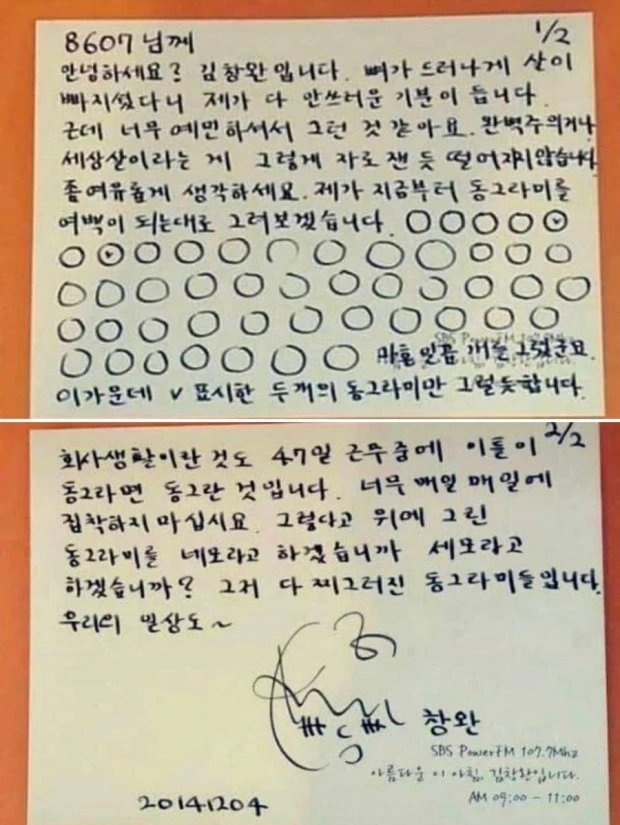 1/2
8607 님께
안녕하세요? 김창완입니다. 뼈가 드러나게 살이
빠지셨다니 제가 다 안쓰러운 기분이 듭니다.
근데 너무 예민하셔서 그런 것 같아요. 완벽주의거나
세상살이라는 게 그렇게 자로 잰 듯 떨어지지 않습니다
좀 여유롭게 생각하세요. 제가 지금부터 동그라미를
여백이 되는대로 그려보겠습니다.
SBS PowerFM
마흔 일곱 개를 그렸군요.
이 가운데 v 표시한 두개의 동그라미만 그럴듯합니다.
2/2
회사생활이란 것도 47일 근무 중에 이틀이
동그라면 동그란 것입니다. 너무 매일 매일에
집착하지 마십시요. 그렇다고 위에 그린
동그라미를 네모라고 하겠습니까 세모라고
하겠습니까? 그저 다 찌그러진 동그라미들입니다.
우리의 일상도~
창완
SBS PowerFM 107.7Mhz
아름다운 이 아침, 김창완입니다.
AM 09:00 - 11:00
20141204